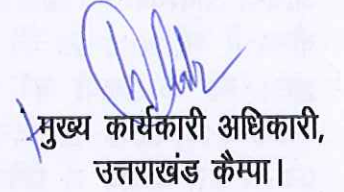 मुख्य कार्यकारी अधिकारी,
उत्तराखंड कैम्पा।